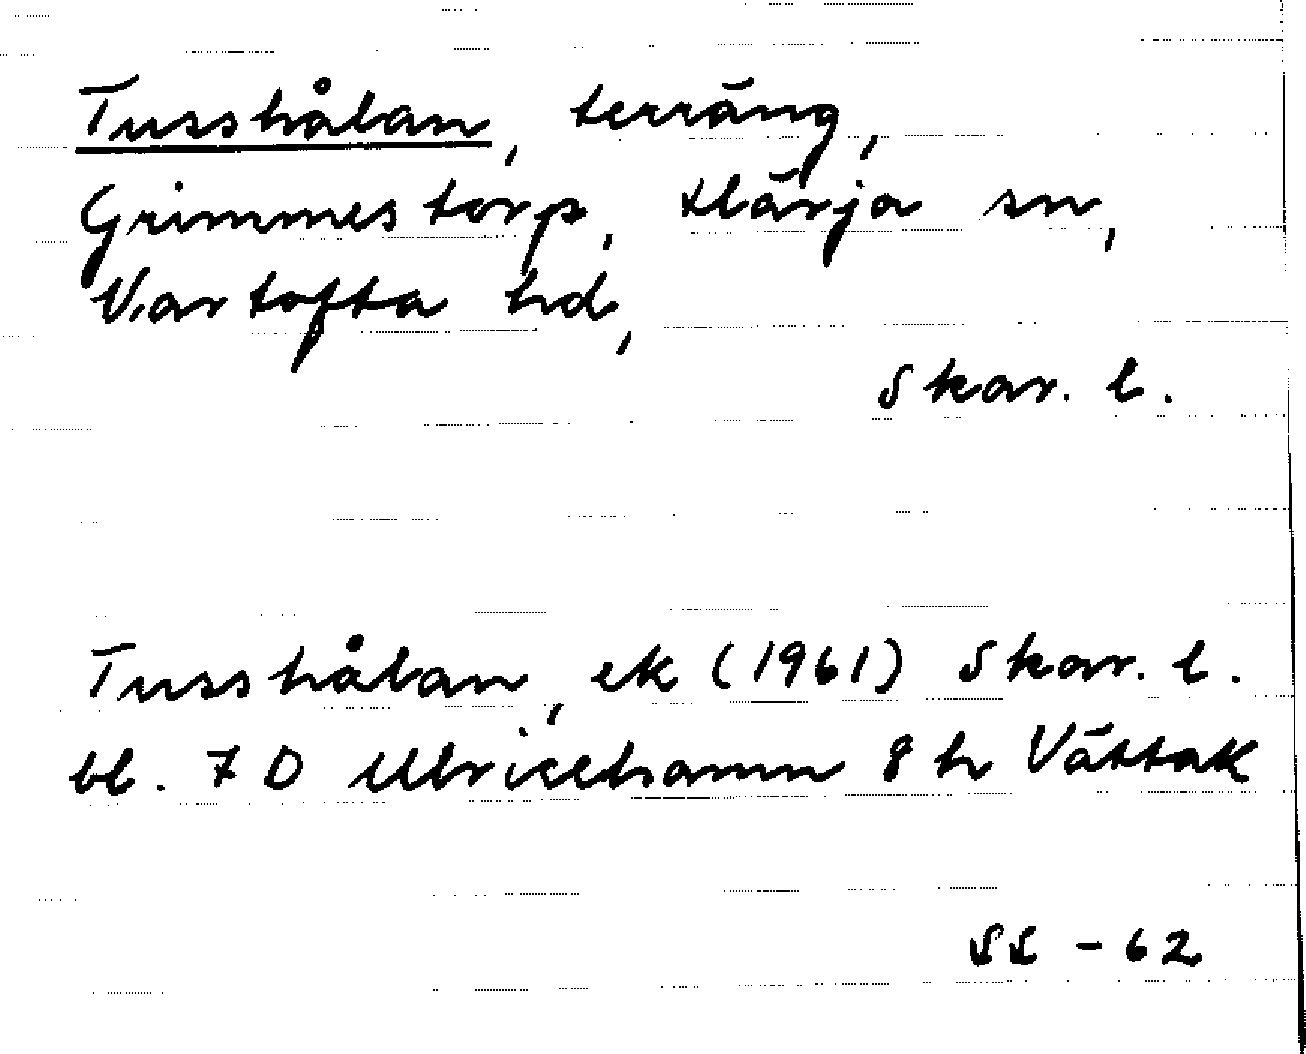 Tusshålan, terräng,
Grimmestorp, Härja sn,
Vartofta hd,
Skar. l.
Tusshålan, ek (1961) Skar. l.
bl. 7 D Ulricehamn 8 h Vättak
SS - 62